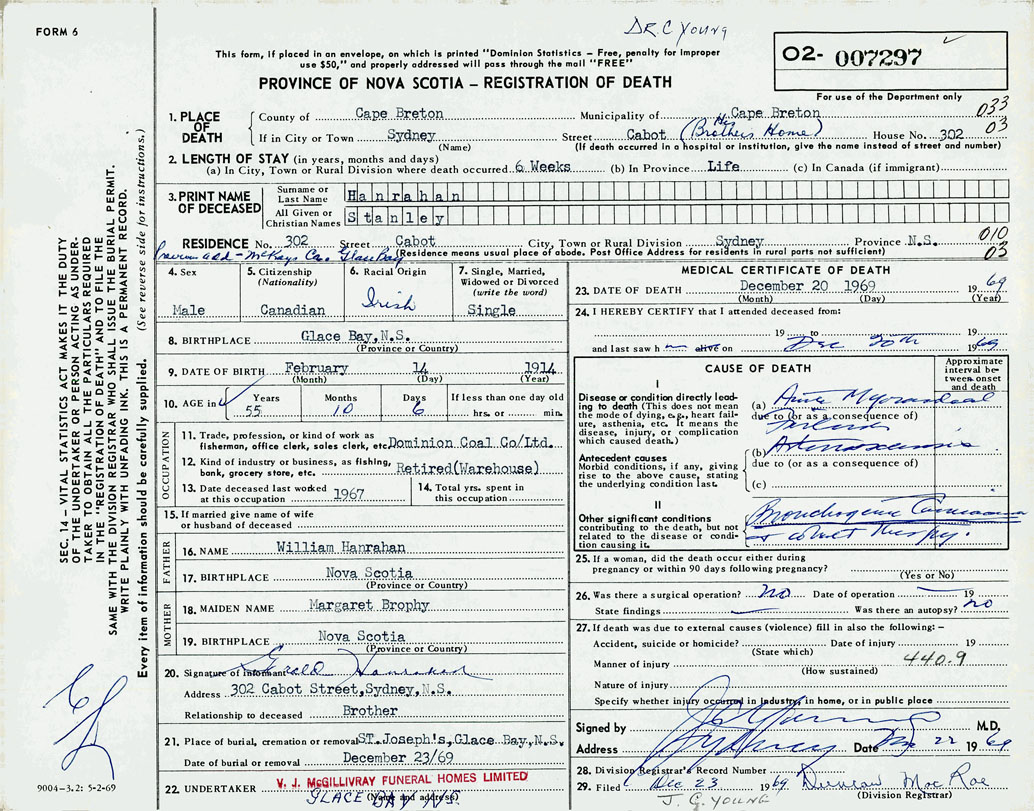 FORM 6
DR. C YOUNG
This form, if placed in an envelope, on which is printed "Dominion Statistics – Free, penalty for improper
use $50," and properly addressed will pass through the mail "FREE"
PROVINCE OF NOVA SCOTIA – REGISTRATION OF DEATH
02- 007297
For use of the Department only
033
03
1. PLACE OF DEATH
County of Cape Breton Municipality of Cape Breton
If in City or Town Sydney Street Cabot (His Brothers Home) House No. 302
(Name) (If death occurred in a hospital or institution, give the name instead of street and number)
2. LENGTH OF STAY (in years, months and days)
(a) In City, Town or Rural Division where death occurred 6 Weeks (b) In Province Life (c) In Canada (if immigrant)
3. PRINT NAME OF DECEASED
Surname or Last Name Hanrahan
All Given or Christian Names Stanley
RESIDENCE No. 302 Street Cabot City, Town or Rural Division Sydney Province N.S.
010
03
(Residence means usual place of abode. Post Office Address for residents in rural parts not sufficient)
Previous add - McKays Cr. Glace Bay
4. Sex Male
5. Citizenship (Nationality) Canadian
6. Racial Origin Irish
7. Single, Married, Widowed or Divorced (write the word) Single
8. BIRTHPLACE Glace Bay, N.S.
(Province or Country)
9. DATE OF BIRTH February 14 1914
(Month) (Day) (Year)
10. AGE in Years Months Days If less than one day old
55 10 6 hrs. or min.
OCCUPATION
11. Trade, profession, or kind of work as
fisherman, office clerk, sales clerk, etc. Dominion Coal Co/Ltd.
12. Kind of industry or business, as fishing,
bank, grocery store, etc. Retired(Warehouse)
13. Date deceased last worked
at this occupation 1967
14. Total yrs. spent in
this occupation
15. If married give name of wife
or husband of deceased
FATHER
16. NAME William Hanrahan
17. BIRTHPLACE Nova Scotia
(Province or Country)
MOTHER
18. MAIDEN NAME Margaret Brophy
19. BIRTHPLACE Nova Scotia
(Province or Country)
20. Signature of Informant Gerald Hanrahan
Address 302 Cabot Street, Sydney, N.S.
Relationship to deceased Brother
21. Place of burial, cremation or removal ST. Joseph's, Glace Bay, N.S.
Date of burial or removal December 23/69
22. UNDERTAKER V. J. McGILLIVRAY FUNERAL HOMES LIMITED
(Name and address)
GLACE BAY N.S.
MEDICAL CERTIFICATE OF DEATH
23. DATE OF DEATH December 20 1969 1969
(Month) (Day) (Year)
24. I HEREBY CERTIFY that I attended deceased from:
19 to 19
and last saw h m alive on Dec 20th 1969
CAUSE OF DEATH
Approximate interval between onset and death
I
Disease or condition directly leading to death (This does not mean the mode of dying, e.g., heart failure, asthenia, etc. It means the disease, injury, or complication which caused death.)
(a) Acute Myocardial
due to (or as a consequence of)
Failure
Antecedent causes
Morbid conditions, if any, giving rise to the above cause, stating the underlying condition last.
(b)
due to (or as a consequence of)
(c)
II
Other significant conditions
contributing to the death, but not related to the disease or condition causing it.
Bronchogenic Carcinoma
& cobalt therapy.
25. If a woman, did the death occur either during
pregnancy or within 90 days following pregnancy?
(Yes or No)
26. Was there a surgical operation? NO Date of operation 19
State findings Was there an autopsy? NO
27. If death was due to external causes (violence) fill in also the following: –
Accident, suicide or homicide? Date of injury 19
(State which)
Manner of injury 440.9
(How sustained)
Nature of injury
Specify whether injury occurred in industry, in home, or in public place
Signed by M.D.
Address Sydney Date Dec 22 1969
28. Division Registrar's Record Number
29. Filed Dec 23 1969 Duncan MacRae
(Division Registrar)
J. G. YOUNG
SEC. 14 – VITAL STATISTICS ACT MAKES IT THE DUTY
OF THE UNDERTAKER OR PERSON ACTING AS UNDER-
TAKER TO OBTAIN ALL THE PARTICULARS REQUIRED
IN THE "REGISTRATION OF DEATH" AND TO FILE THE
SAME WITH THE DIVISION REGISTRAR WHO SHALL ISSUE THE BURIAL PERMIT.
WRITE PLAINLY WITH UNFADING INK. THIS IS A PERMANENT RECORD.
Every item of information should be carefully supplied. (See reverse side for instructions.)
9004-3.2: 5-2-69